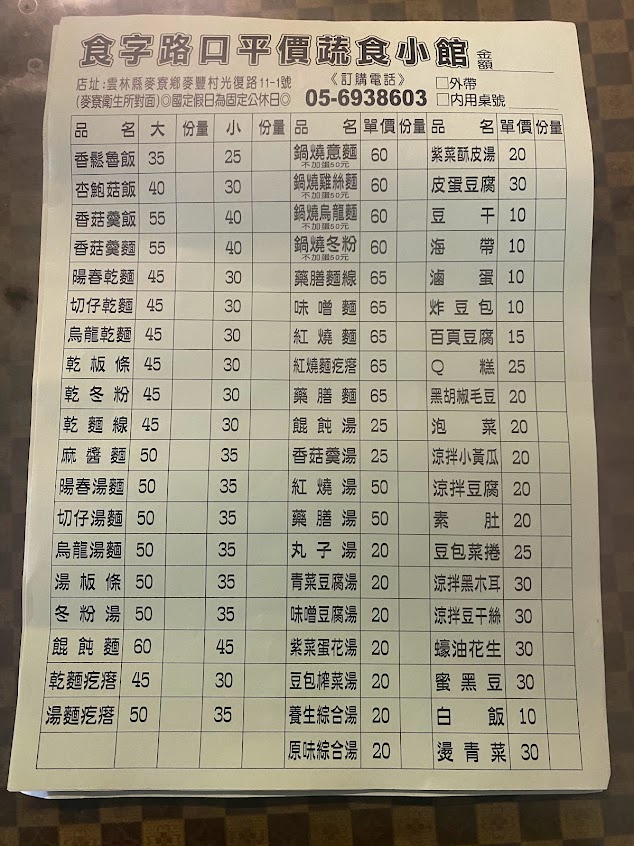 食字路口平價蔬食小館 金額
店址:雲林縣麥寮鄉麥豐村光復路11-1號 《訂購電話》 □外帶
(麥寮衛生所對面)◎國定假日為固定公休日◎ 05-6938603 □內用桌號
品名 大 份量 小 份量 品名 單價 份量 品名 單價 份量
香鬆魯飯 35 25 鍋燒意麵 60 紫菜酥皮湯 20
不加蛋50元
杏鮑菇飯 40 30 鍋燒雞絲麵 60 皮蛋豆腐 30
不加蛋50元
香菇羹飯 55 40 鍋燒烏龍麵 60 豆干 10
不加蛋50元
香菇羹麵 55 40 鍋燒冬粉 60 海帶 10
不加蛋50元
陽春乾麵 45 30 藥膳麵線 65 滷蛋 10
切仔乾麵 45 30 味噌麵 65 炸豆包 10
烏龍乾麵 45 30 紅燒麵 65 百頁豆腐 15
乾板條 45 30 紅燒麵疙瘩 65 Q糕 25
乾冬粉 45 30 藥膳麵 65 黑胡椒毛豆 20
乾麵線 45 30 餛飩湯 25 泡菜 20
麻醬麵 50 35 香菇羹湯 25 涼拌小黃瓜 20
陽春湯麵 50 35 紅燒湯 50 涼拌豆腐 20
切仔湯麵 50 35 藥膳湯 50 素肚 20
烏龍湯麵 50 35 丸子湯 20 豆包菜捲 25
湯板條 50 35 青菜豆腐湯 20 涼拌黑木耳 30
冬粉湯 50 35 味噌豆腐湯 20 涼拌豆干絲 30
餛飩麵 60 45 紫菜蛋花湯 20 蠔油花生 30
乾麵疙瘩 45 30 豆包榨菜湯 20 蜜黑豆 30
湯麵疙瘩 50 35 養生綜合湯 20 白飯 10
原味綜合湯 20 燙青菜 30